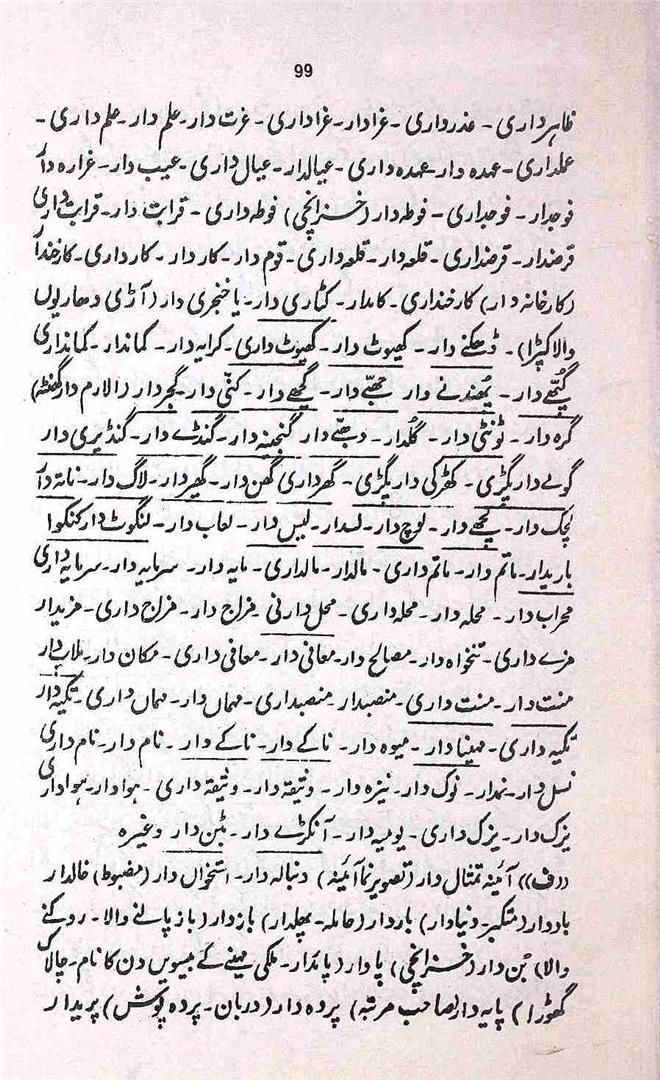 99
ظاہر داری - عذر داری - عزادار - عزاداری - عزت دار - علم دار - علم داری -
عملداری - عہدہ دار - عہدہ داری - عیالدار - عیال داری - عیب دار - غرارہ دار
فوجدار - فوجداری - فوطہ دار (خزانچی) فوطہ داری - قرابت دار - قرابت داری
قرضدار - قرضداری - قلعہ دار - قلعہ داری - قوم دار - کار دار - کار داری - کارخندار
(کارخانہ دار) کارخنداری - کامدار - کٹاری دار - یا خنجری دار (آڑی دھاریوں
والا کپڑا) - ڈھکنے دار - کھیوٹ دار - کھیوٹ داری - کرایہ دار - کماندار - کمانداری
گپھے دار - پھندنے دار جھبّے دار - گچھے دار - کنّی دار - گجر دار (الارم دار گھنٹہ)
گرہ دار - ٹونٹی دار - گلدار - دھبّے دار گنجفہ دار - گنڈے دار - گنڈیری دار
گولے دار پگڑی - کھڑکی دار پگڑی - گھر داری گھن دار - گھیر دار - لاگ دار -
لچک دار - لچھے دار - لوچ دار - لسدار - لیس دار - لعاب دار - لنگوٹ دار کنکوا
باریدار - ماتم دار - ماتم داری - مالدار - مالداری - مایہ دار - سرمایہ دار - سرمایہ داری
محراب دار - محلہ دار - محلہ داری - محل دارنی - مزاج دار - مزاج داری - مزیدار
مزے داری - تنخواہ دار - مصالح دار - معافی دار - معافی داری - مکان دار -
منت دار - منت داری - منصبدار منصبداری - مہماں دار - مہماں داری - تکیہ دار
تکیہ داری - مہینا دار - میوہ دار - ناکے دار - ناکے دار - نام دار - نام داری
نسل دار - نمدار - نوک دار - نیزہ دار - وثیقہ دار - وثیقہ داری - ہوا دار - ہوا داری
یزک دار - یزک داری - یومیہ دار - آنکڑے دار - بٹن دار وغیرہ
((ف)) آئینہ تمثال دار (تصویر نما آئینہ) دنبالہ دار - استخواں دار (مضبوط) خالدار
باد دار (متکبر - دنیا دار) باردار (حاملہ - پھلدار) بازدار (باز پالنے والا - روکنے
والا) بُن دار (خزانچی) پادار (پائدار - ملکی مہینے کے بیسویں دن کا نام - چالاک
گھوڑا) پایہ دار (صاحب مرتبہ) پردہ دار (دربان - پردہ پوش) پریدار